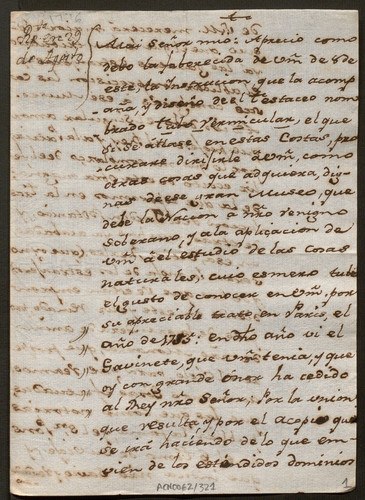 Muy Señor mio: Aprecio como
debo la faborecida de Vm̃. de 8 de
este, la Instruccion que la acomp
aña, y diseño del Testaceo nom
brado Taret Vermicular, el que
si se allase en estas Costas, pro
curare dirijirle à Vm̃, como
otras cosas que adquiera, dig
nas de ese gran Museo, que
debe la Nacion a ñro Venigno
Soberano, y a la aplicacion de
Vm̃ a el estudio de las cosas
naturales; cuio esmero tube
el gusto de conocer en Vm̃. por
su apreciable trato, en Paris, el
año de 1755: en dho año vi el
Gavinete, que Vm̃ tenia, y que
oy con grande onor ha cedido
al Rey ñro Señor; por la union
que resulta, y por el acopio que
se irá haciendo de lo que em
vien de los estendidos dominios
ACN0062/321
1